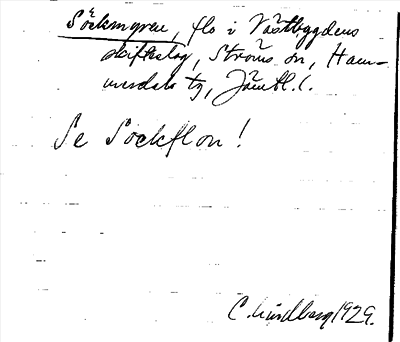 Söckmyren, flo i Västbyggdens
skifteslag, Ströms sn, Ham-
merdals tg, Jämtl. l.
Se Sockflon!
C. Lindberg 1929.